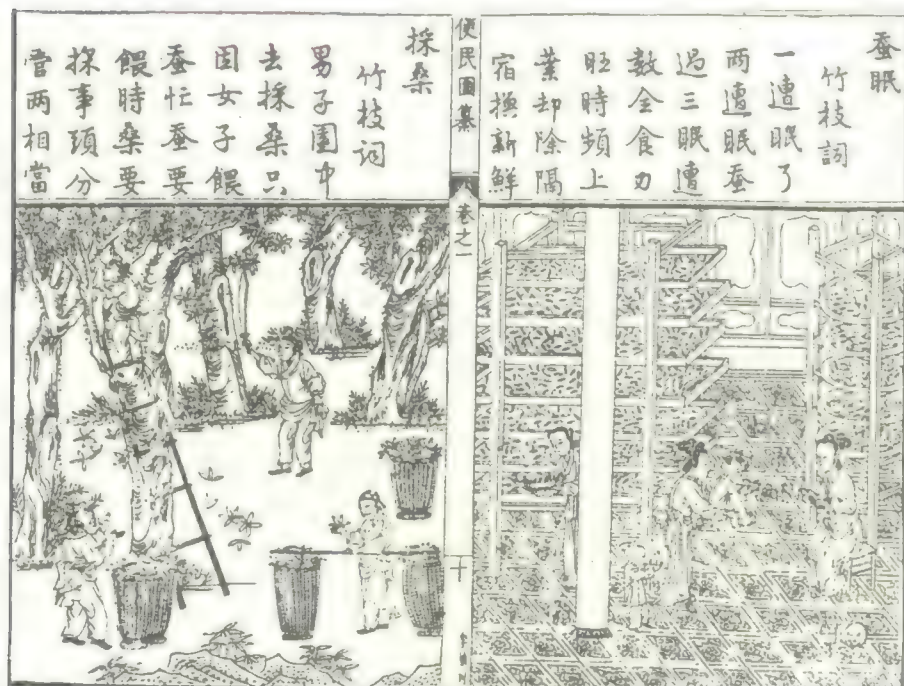 蚕眠
竹枝詞
一遭眠了
两遭眠蚕
過三眠遭
數全食力
旺時頻上
葉却除隔
宿換新鮮
便民圖纂
卷之一
十
採桑
竹枝詞
男子園中
去採桑只
因女子餵
蚕忙蚕要
餵時桑要
採事頭分
管两相當